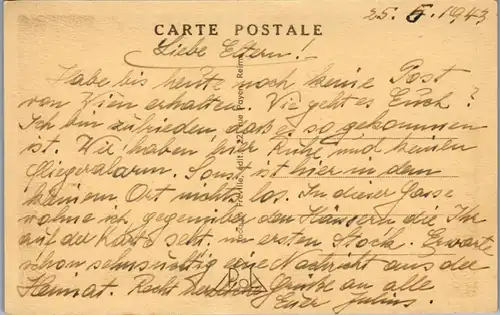 25. 6. 1943
CARTE POSTALE
Liebe Eltern!
Habe bis heute noch keine Post
von Wien erhalten. Wie geht es Euch?
Ich bin zufrieden daß es so gekommen
ist. Wir haben hier Ruhe und keinen
Fliegeralarm. Sonst ist hier in dem
kleinen Ort nichts los. In dieser Gasse
wohne ich, gegenüber den Häusern die Ihr
auf der Karte seht. im ersten Stock. Erwarte
schon sehnsüchtig eine Nachricht aus der
Heimat. Recht herzliche Grüße an alle
Euer Julius.
édit. 32, rue Payen, Reims